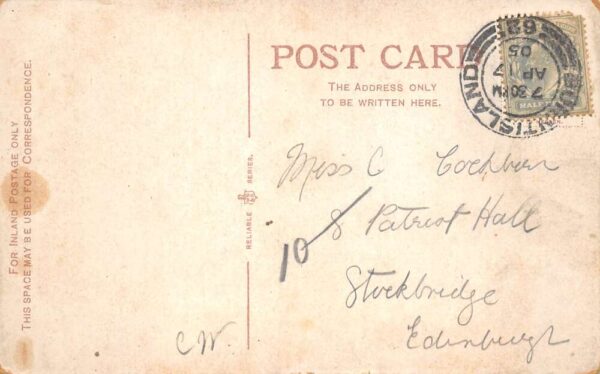 FOR INLAND POSTAGE ONLY
THIS SPACE MAY BE USED FOR CORRESPONDENCE.
RELIABLE SERIES.
C W.
POST CARD
THE ADDRESS ONLY
TO BE WRITTEN HERE.
BURNTISLAND
7 30
AP 17
05
Miss C Cockburn
10 8 Patriot Hall
Stockbridge
Edinburgh